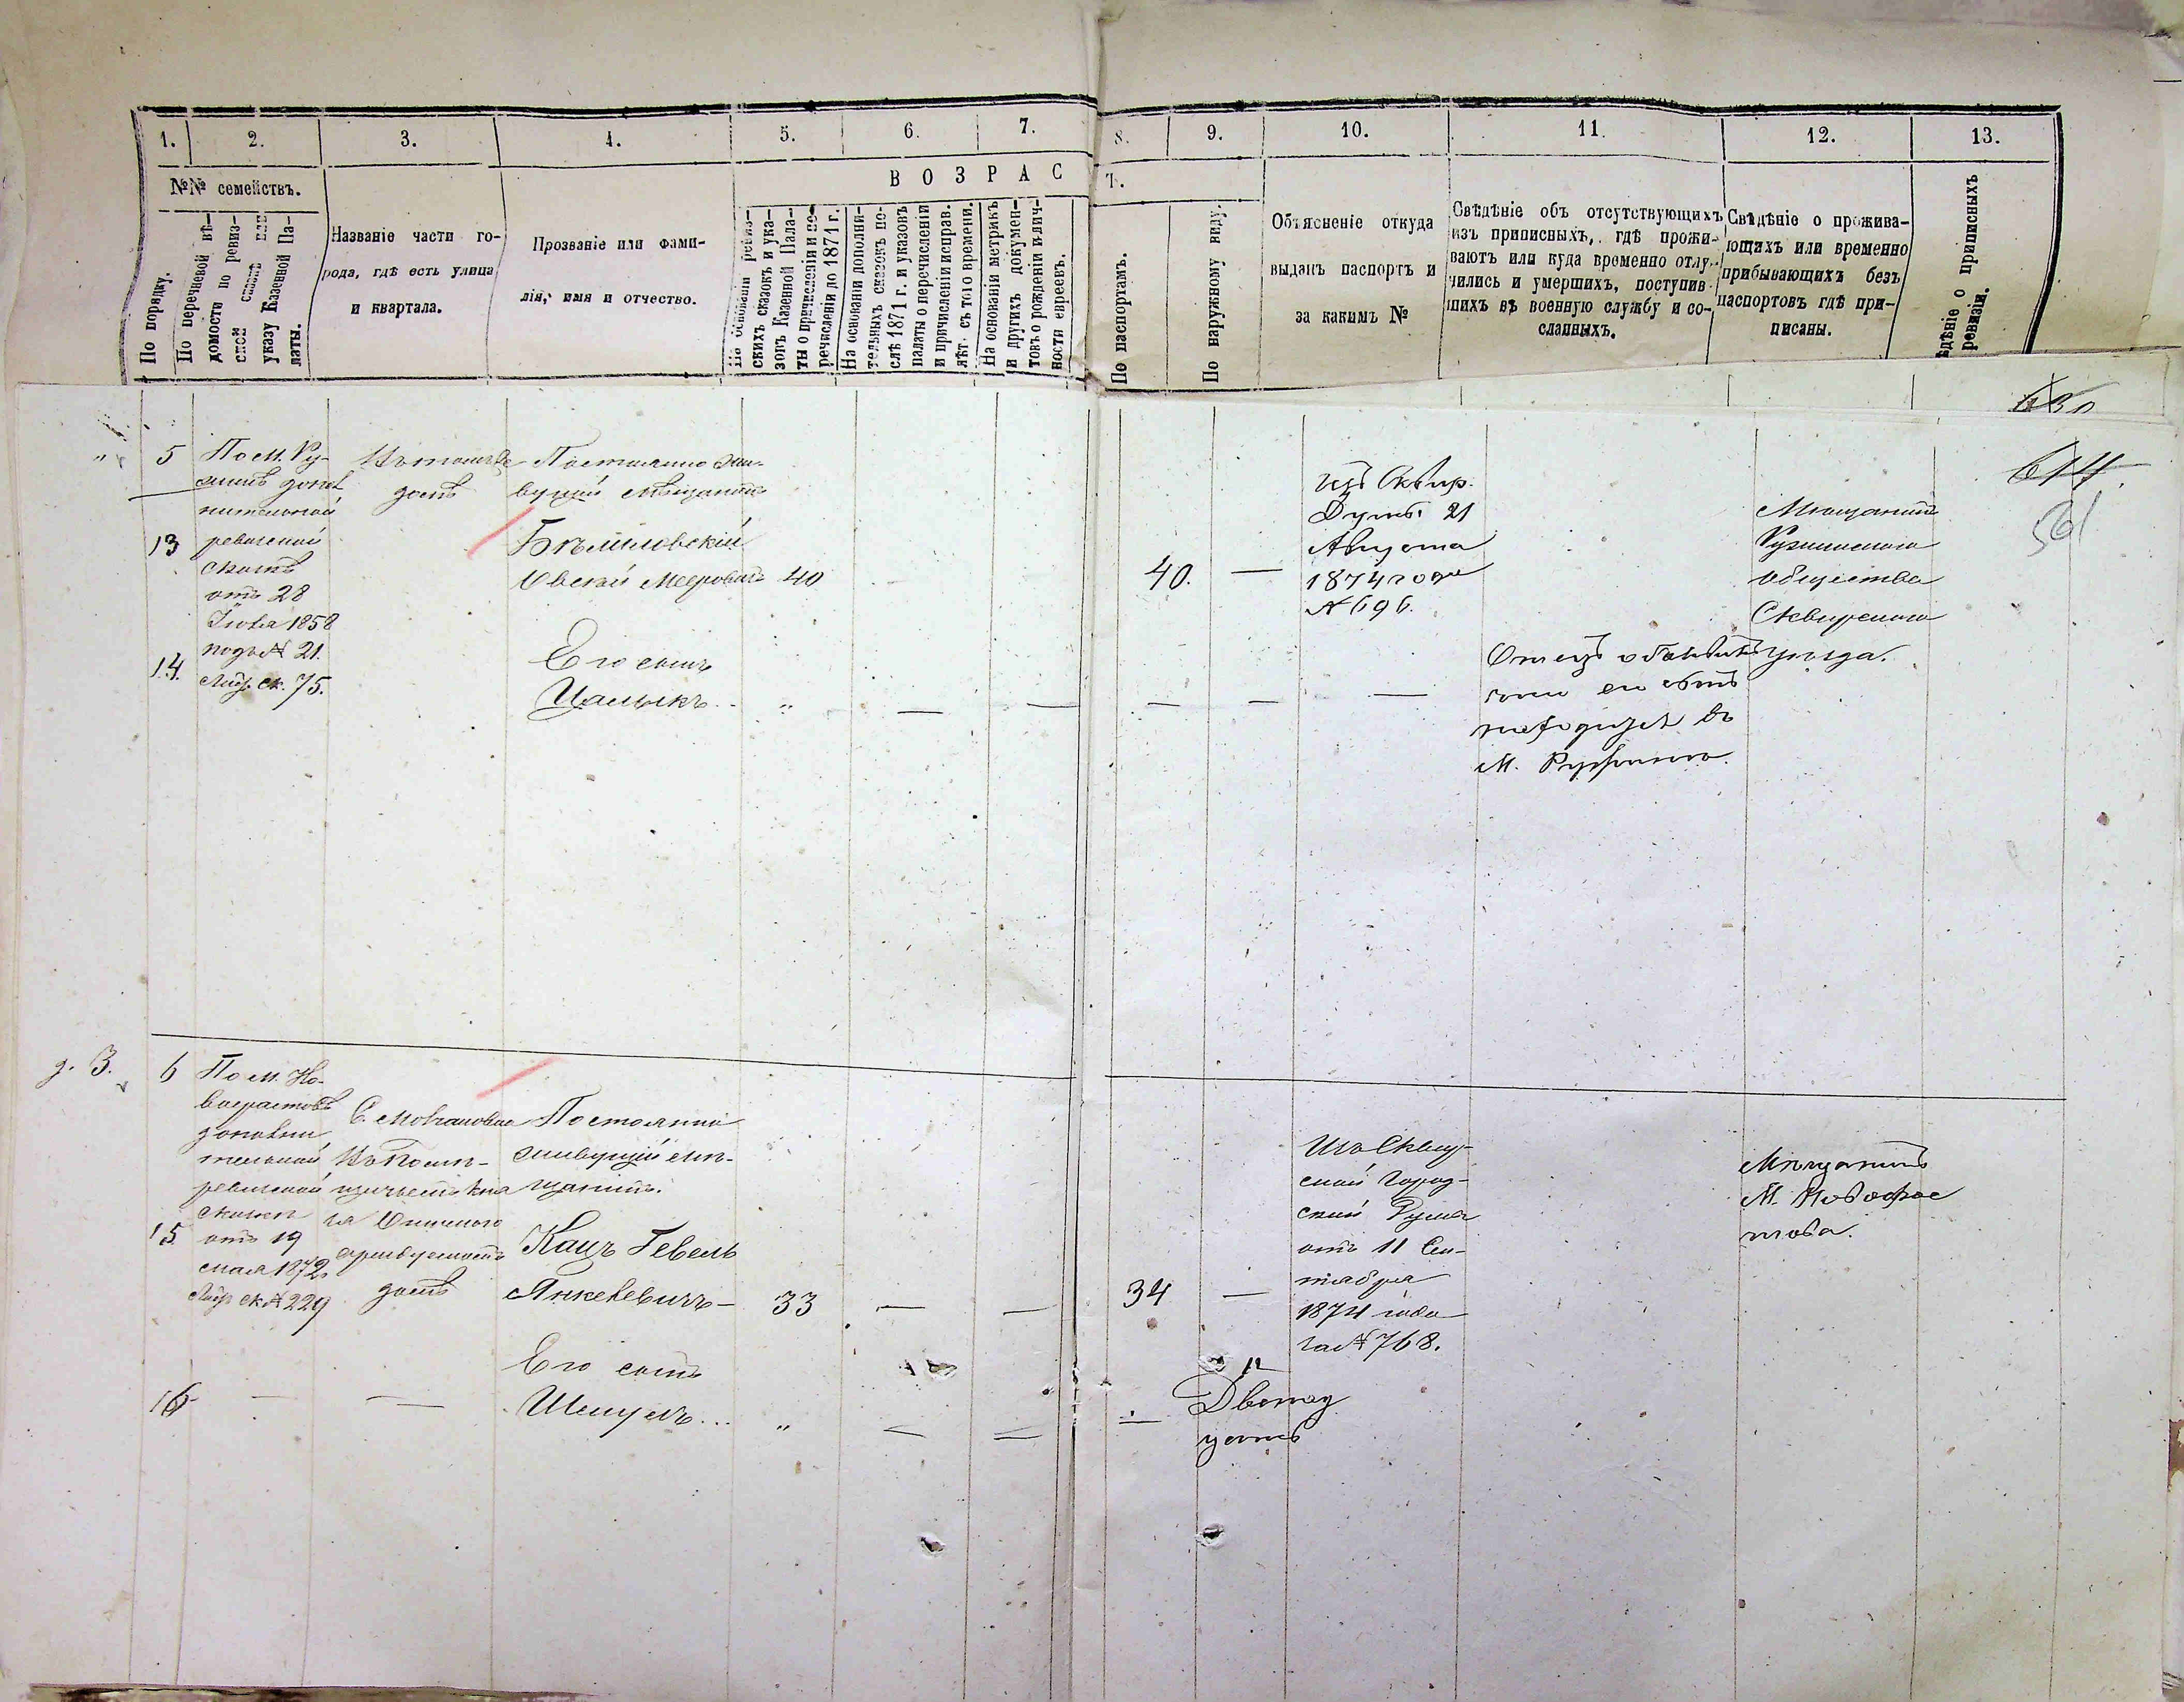 1.
2.
3.
4.
5.
6.
7.
8.
9.
10.
11.
12.
13.
№№ семействъ.
По порядку.
По перечневой вѣ-
домости по ревиз-
ской сказкѣ или
указу Казенной Па-
латы.
Названіе части го-
рода, гдѣ есть улица
и квартала.
Прозваніе или фами-
лія, имя и отчество.
ВОЗРАС
Т.
На основаніи ревиз-
скихъ сказокъ и ука-
зовъ Казенной Пала-
ты о причисленіи и пе-
речисленіи до 1871 г.
На основаніи дополни-
тельныхъ сказокъ по-
слѣ 1871 г. и указовъ
палаты о перечисленіи
и причисленіи исправ.
лѣт. съ того времени.
На основаніи метрикъ
и другихъ докумен-
товъ о рожденіи и лич-
ности евреевъ.
По паспортамъ.
По наружному виду.
Объясненіе откуда
выданъ паспортъ и
за какимъ №
Свѣдѣніе объ отсутствующихъ
изъ приписныхъ, гдѣ прожи-
ваютъ или куда временно отлу-
чились и умершихъ, поступив-
шихъ въ военную службу и со-
сланныхъ.
Свѣдѣніе о прожива-
ющихъ или временно
прибывающихъ безъ
паспортовъ гдѣ при-
писаны.
ѣдѣніе о приписныхъ
ревизіи.
5
По м. Ру-
жинъ допол
нительной
ревизской
сказкѣ
отъ 28
1858
подъ № 21.
ск. 75.
домѣ
Постоянно жи-
вущій мѣщанинъ
13
Бѣлиловскій
Овсей Меерович 40
40. —
изъ Сквир.
Думы 21
Августа
1874 года
№ 696.
Мѣщанинъ
Ружинскаго
общества
Сквирскаго
уѣзда.
614
561
14.
Его сынъ
Цалыкъ
Отецъ объявилъ
что сынъ
находится въ
М. Ружинѣ.
д. 3.
6
По м. Но-
ворастовъ
дополни
тельной
ревизской
сказки
отъ 19
мая 1872
ск № 229
домѣ
Постоянно
живущій мѣ-
щанинъ.
15
Кацъ Гевель
Янкелевичъ — 33 — —
34 —
Изъ Сквир-
ской Город-
ской Думы
отъ 11 Сен-
тября
1874 года
за № 768.
Мѣщанинъ
М. Новофас
това.
16 — —
Его сынъ
Шмуль
12
Двѣнад
цать